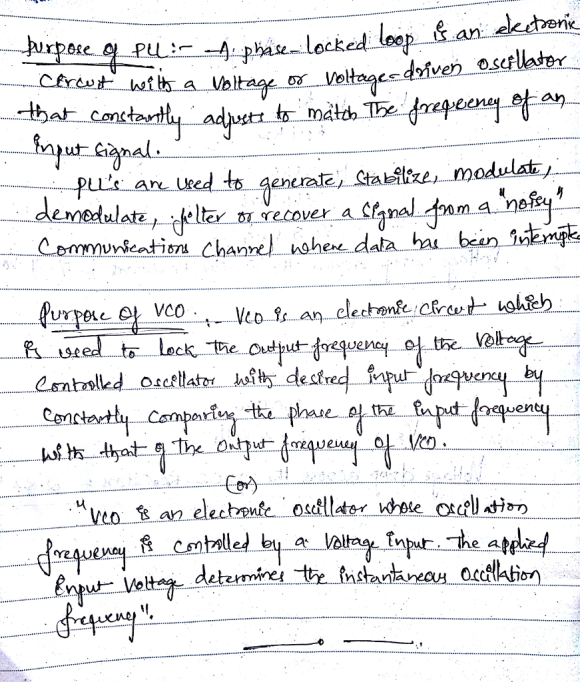 purpose of PLL :- A phase-locked loop is an electronic
circuit with a voltage or voltage-driven oscillator
that constantly adjusts to match The frequency of an
input signal.
PLL's are used to generate, stabilize, modulate,
demodulate, filter or recover a signal from a "noisy"
Communications channel where data has been interrupte
Purpose of VCO :- VCO is an electronic circuit which
is used to Lock the output frequency of the Voltage
Controlled Oscillator with desired input frequency by
Constantly Comparing the phase of the input frequency
with that of The output frequency of VCO.
(or)
"VCO is an electronic oscillator whose oscillation
frequency is controlled by a Voltage input. The applied
input Voltage determines the instantaneous Oscillation
frequency".